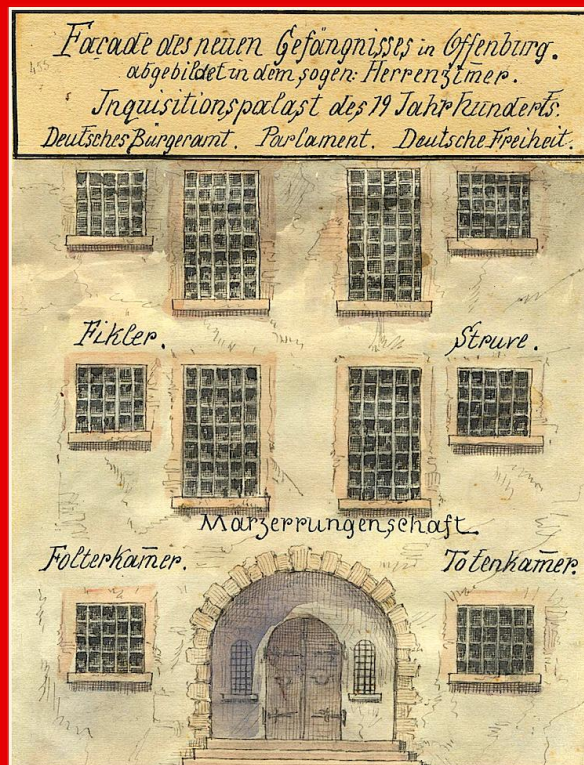 Facade des neuen Gefängnisses in Offenburg.
455
abgebildet in dem sogen: Herrenzim̄er.
Inquisitionspalast des 19 Jahrhunderts.
Deutsches Bürgeramt. Parlament. Deutsche Freiheit.
Fikler. Struve.
Märzerrungenschaft.
Folterkam̄er. Totenkam̄er.